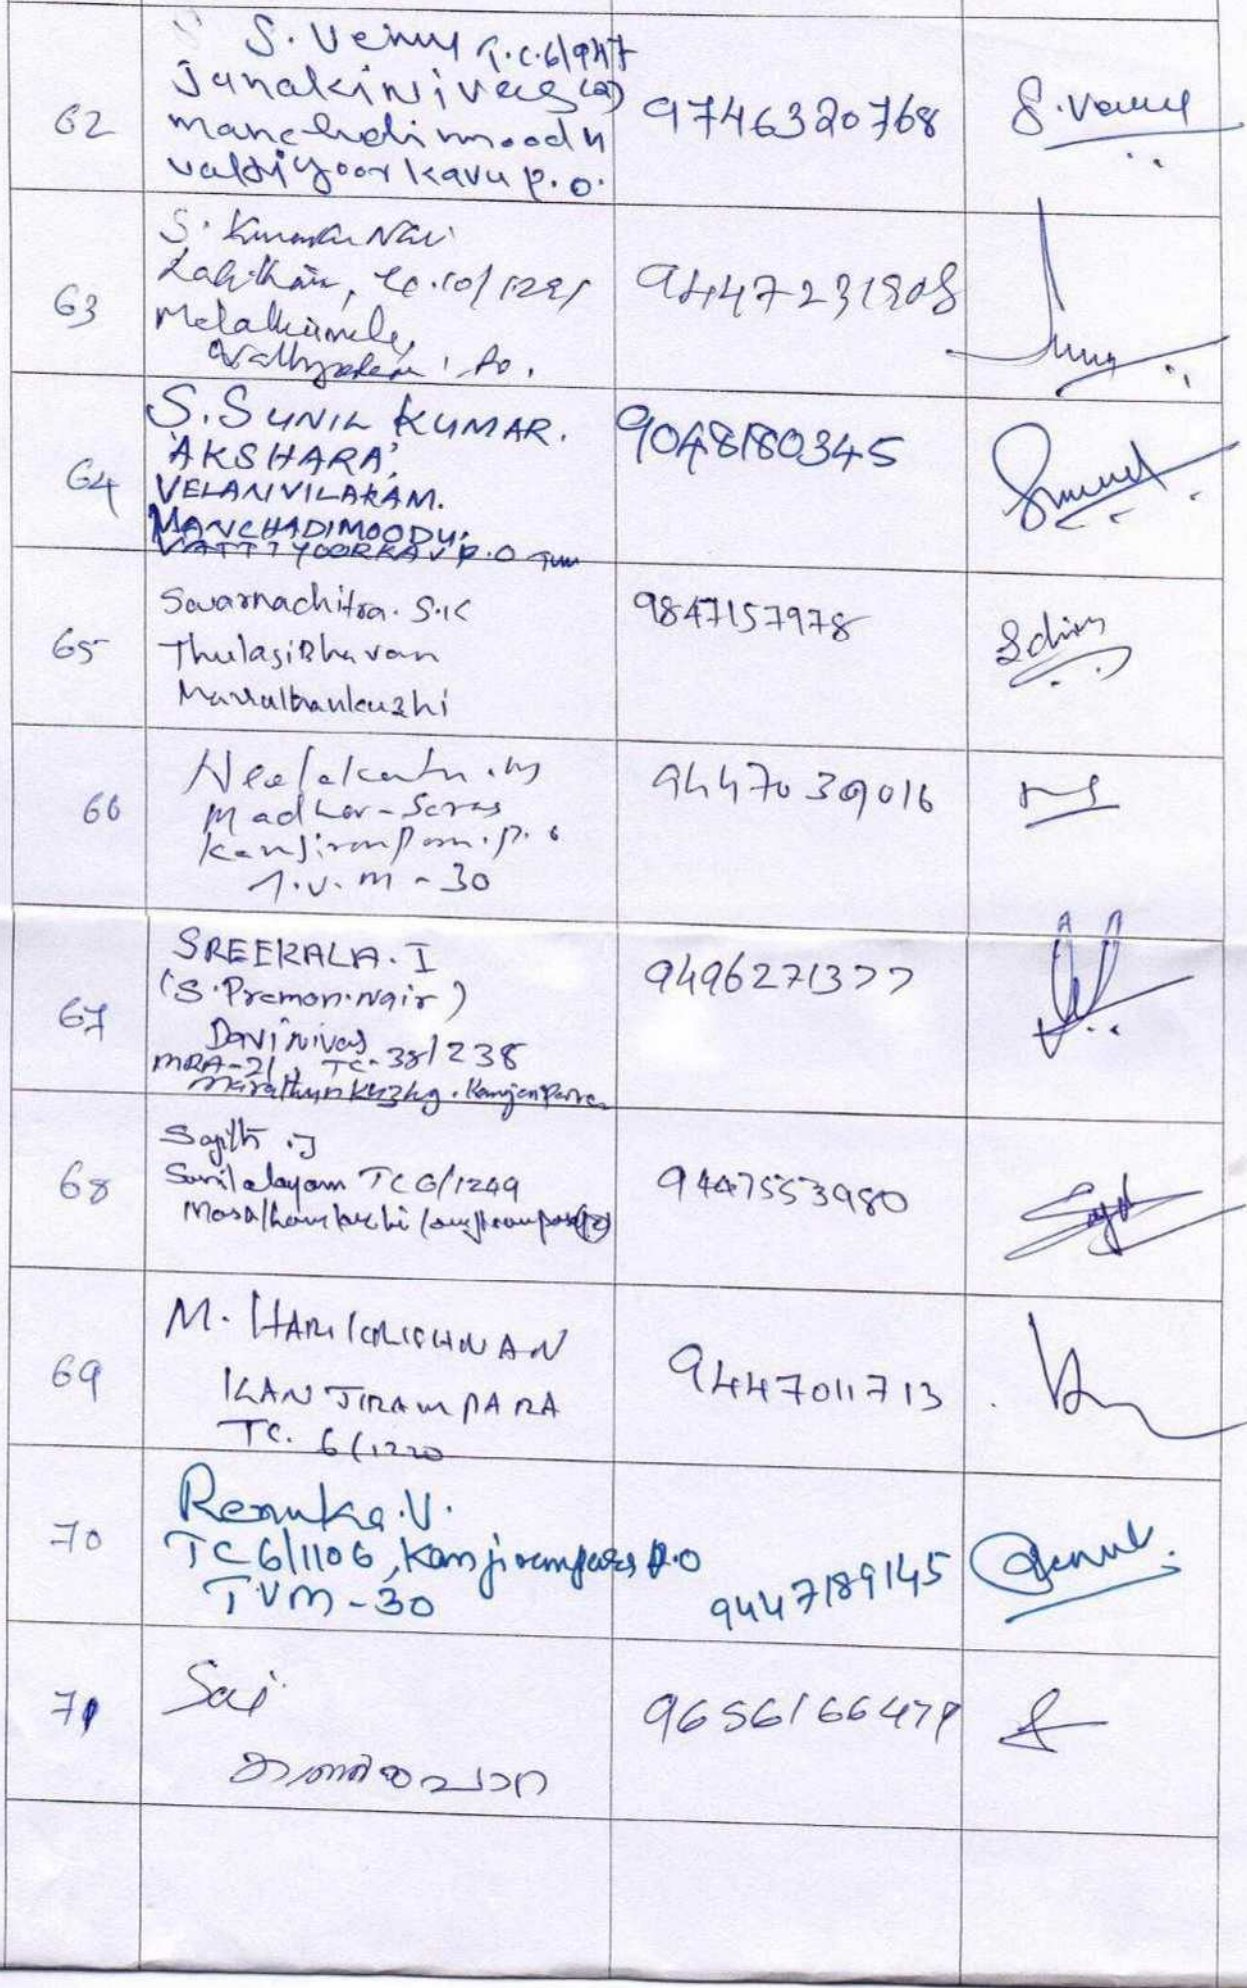 62
S. Venu T.C.6/947
Janakinivas (a)
manchadimoodu
vattiyoorkavu p.o.
9746320768
S. Venu
63
S. Kumar Nair
T.C.10/1291
Melathumele,
P.O.
9447231908
64
S. SUNIL KUMAR.
'AKSHARA',
VELANVILAKAM.
MANCHADIMOODU.
VATTIYOORKAV P.O TVM
9048180345
65
Swarnachitra. S.K
ThulasiBhavan
Maruthankuzhi
9847157978
66
Neelakantn. M
Madhav-Saras
Kanjirampara. P.O
T.V.M-30
9447039016
67
SREEKALA. I
(S. Preman. Nair)
Devi nivas
MRA-21, TC-38/238
Maruthunkuzhy. Kanjanpara
9496271377
68
Sajith .J
Sunilalayam TC 6/1249
9447553980
69
M. HARIKRISHNAN
KANJIRAMPARA
TC. 6/1220
9447011713
70
Renuka. V.
TC 6/1106, Kanjirampara P.O
TVM-30
9447189145
Renuk.
71
Sai
9656166479